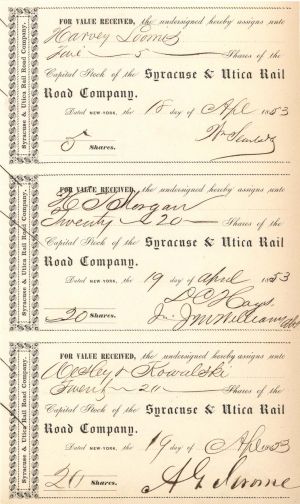 Syracuse & Utica Rail Road Company.
FOR VALUE RECEIVED, the undersigned hereby assigns unto
Harvey Loomis
Five — 5 — Shares of the
Capital Stock of the Syracuse & Utica Rail
Road Company.
Dated NEW-YORK, the 18 day of Apl 1853
5 Shares.
Syracuse & Utica Rail Road Company.
FOR VALUE RECEIVED, the undersigned hereby assigns unto
Morgan
Twenty — 20 — Shares of the
Capital Stock of the Syracuse & Utica Rail
Road Company.
Dated NEW-YORK, the 19 day of April 1853
D C Hays
20 Shares.
Syracuse & Utica Rail Road Company.
FOR VALUE RECEIVED, the undersigned hereby assigns unto
Wesley & Kowalski
Twenty — 20 — Shares of the
Capital Stock of the Syracuse & Utica Rail
Road Company.
Dated NEW-YORK, the 19 day of Apl 1853
20 Shares.
A G Jerome